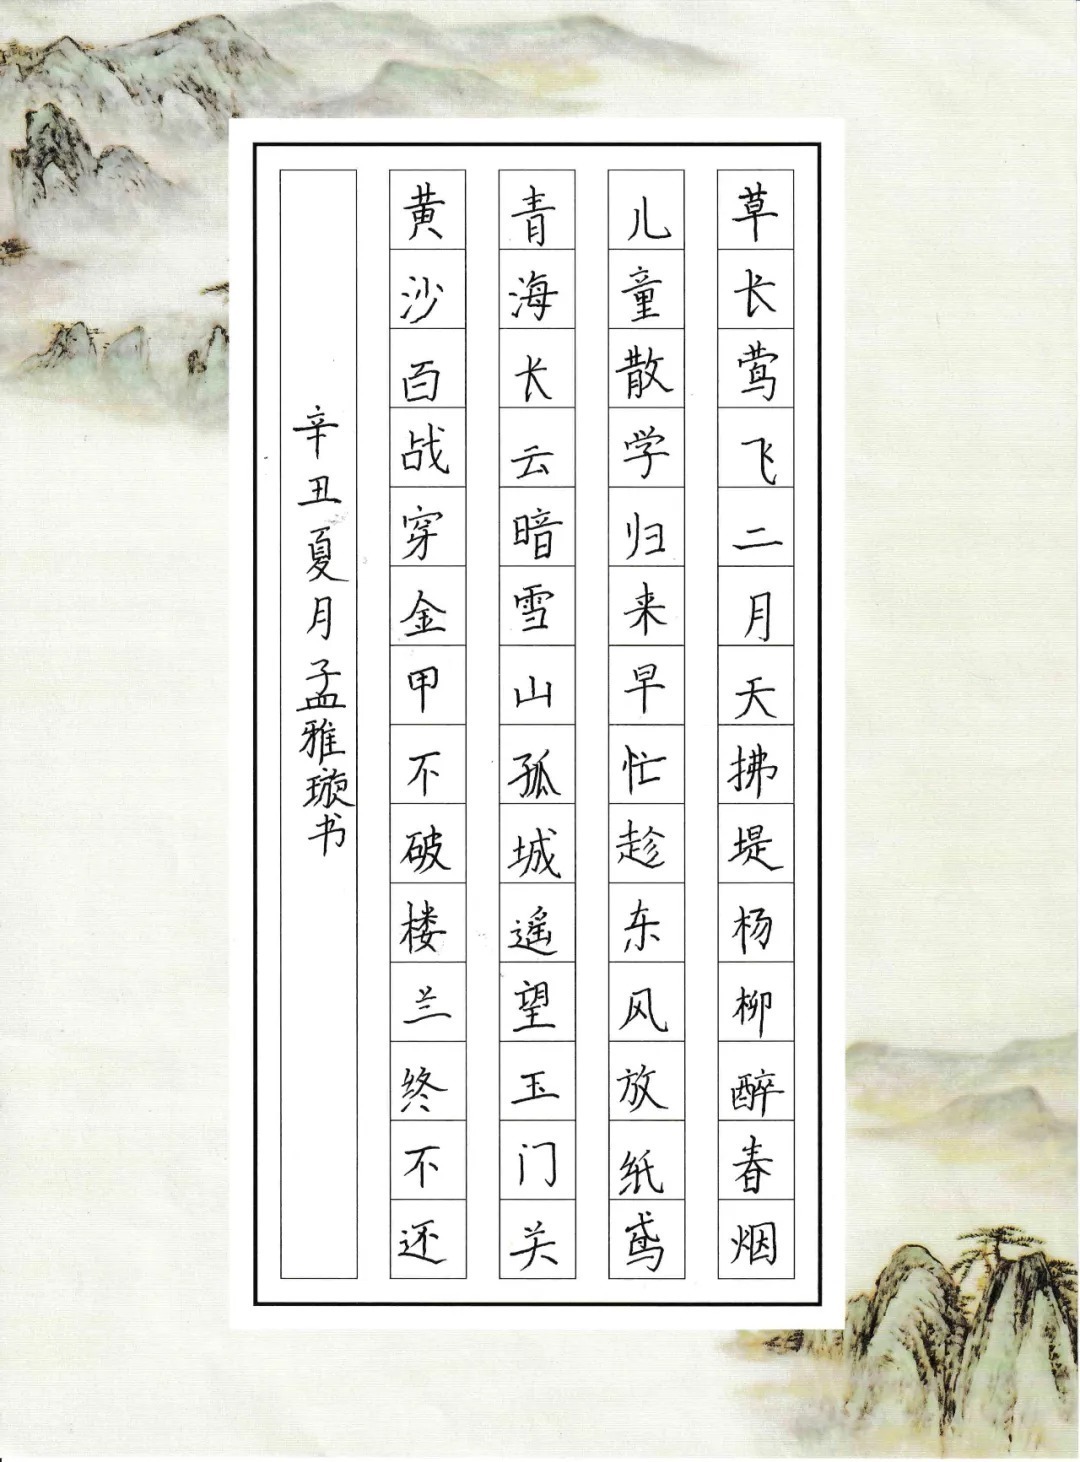 草长莺飞二月天拂堤杨柳醉春烟
儿童散学归来早忙趁东风放纸鸢
青海长云暗雪山孤城遥望玉门关
黄沙百战穿金甲不破楼兰终不还
辛丑夏月孟雅璇书